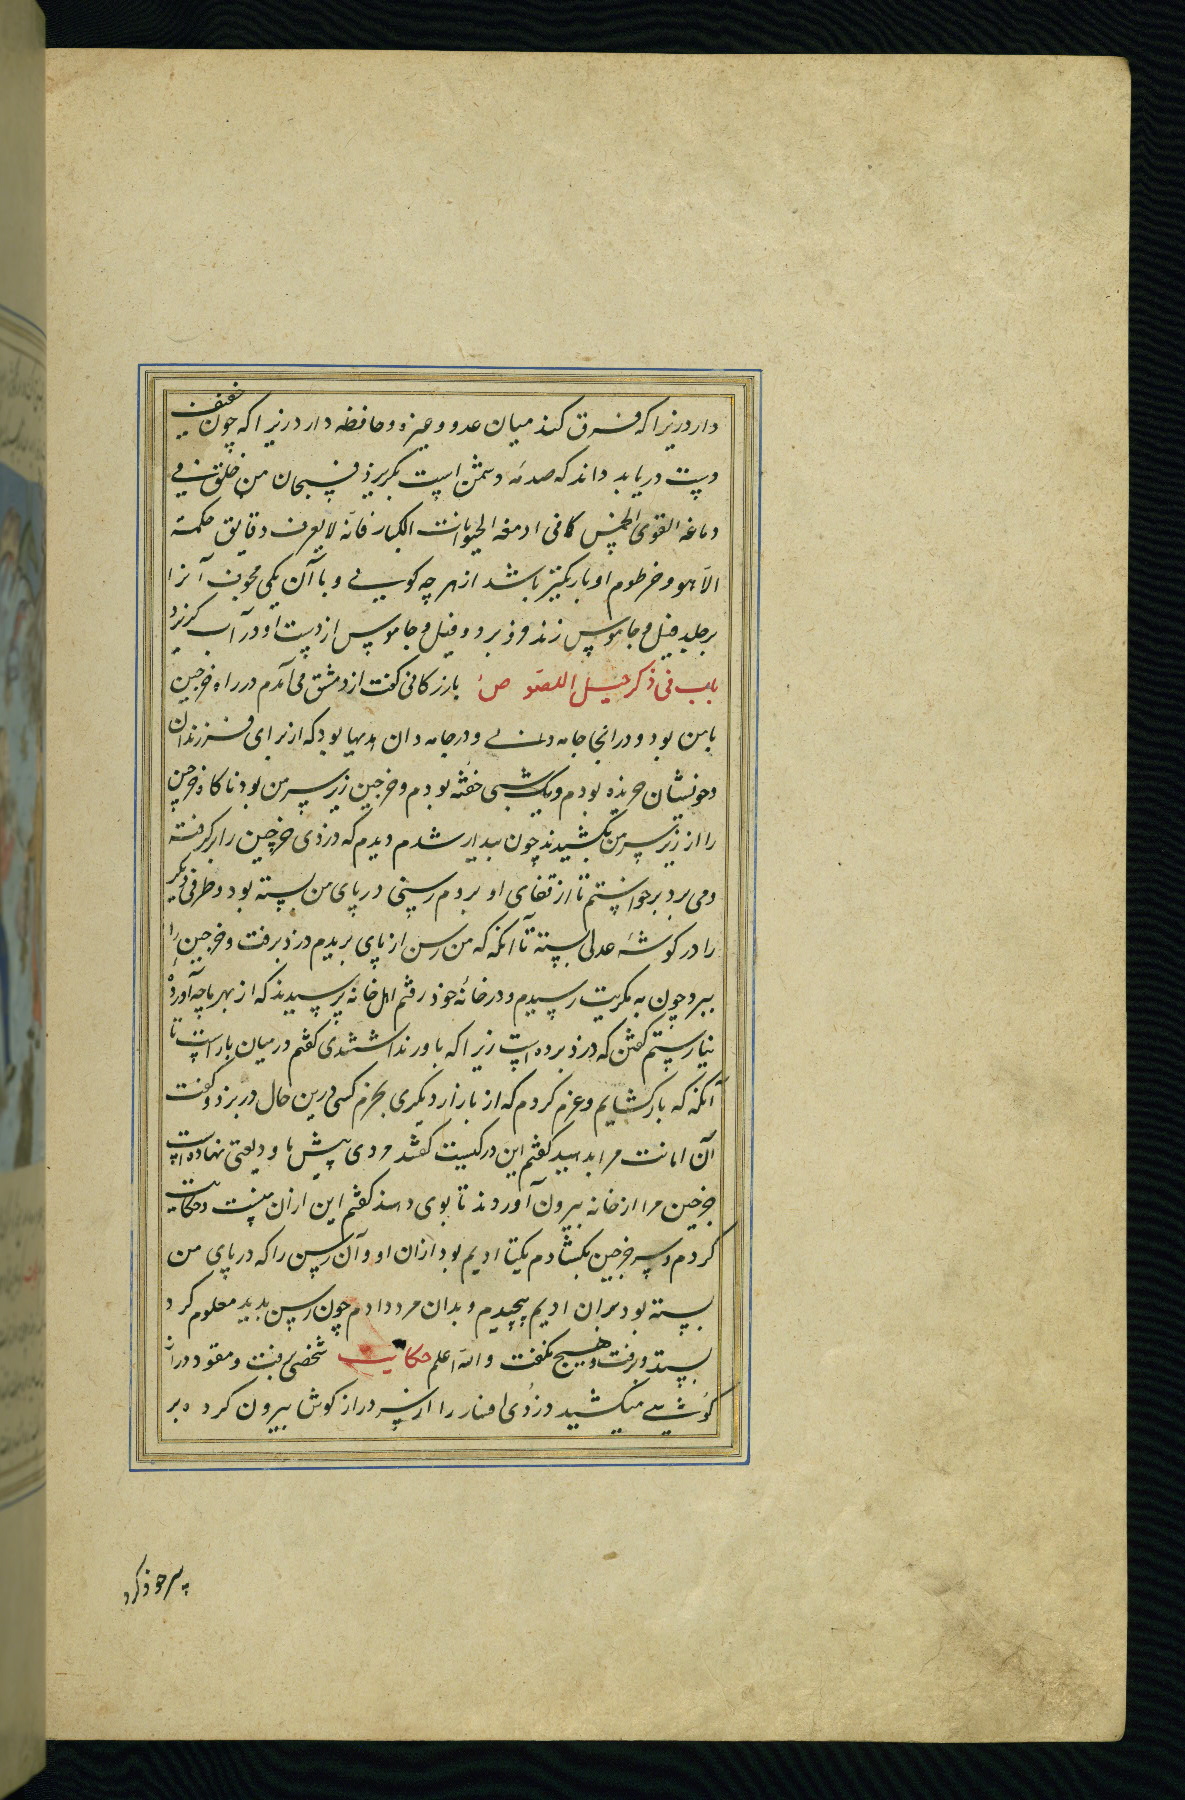 دارد زیرا که فرق کند میان عدو و غیره و حافظه دارد زیرا که چون خفیف
دست دریابد داند که صدمهٔ دشمن است بگریزد فسبحان من خلق فی
دماغه القوی الخمس کما فی ادمغه الحیوانات الکبار فانه لا یعرف دقایق حکمته
الا هو و خرطوم او باریکتر باشد از هر چه گویی و با آن یکی مجوف آنرا
بر جلد فیل و جاموس زند و فرو برد و فیل و جاموس از دست او در آب گریزد
باب فی ذکر حیل اللصوص بازرگانی گفت از دمشق می آمدم در راه خرجین
با من بود و در انجا جامه و در جامه دان هدیها بود که از برای فرزندان
و خویشان خریده بودم و یک شبی خفته بودم و خرجین زیر سر من بود ناگاه خرجین
را از زیر سر من بکشیدند چون بیدار شدم دیدم که دزدی خرجین را برگرفته
و می برد برخواستم تا از قفای او بروم رسنی در پای من بسته بود و طرفی دیگر
را در گوشهٔ عدلی بسته تا آنکه که من رسن از پای بریدم دزد برفت و خرجین را
ببرد چون به تکریت رسیدم و در خانهٔ خود رفتم اهل خانه پرسیدند که از بهر ما چه آورده
نیارستم گفتن که دزد برده است زیرا که باور نداشتندی گفتم در میان بار است تا
آنکه که بار گشایم و عزم کردم که از بازار دیگری بخرم کسی درین حال در بزد و گفت
آن امانت مرا بدهید گفتم این در کیست گفتند مردی پیش ما ودیعتی نهاده است
خرجین مرا از خانه بیرون آوردند تا بوی دهند گفتم این ازان منست و حکایت
کردم و سر خرجین بگشادم یکتا ادیم بود ازان او و آن رسن را که در پای من
بسته بود بران ادیم پیچیدم و بدان مرد دادم چون رسن بدید معلوم کرد
بستد و برفت و هیچ نگفت والله اعلم حکایت شخصی میرفت و مقود دراز
گوشی میکشید دزدی افسار را از سر درازگوش بیرون کرده بر
سر خود کرد